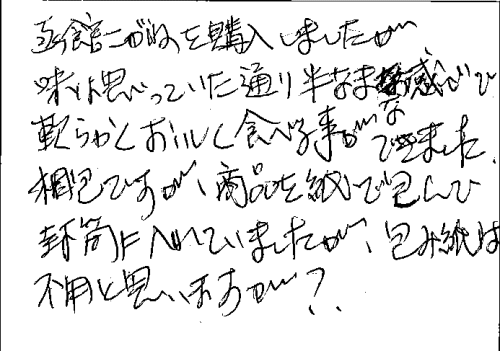 函館こがねを購入しましたが
味は思っていた通り半なまな感じで
軟らかくおいしく食べる事ができました。
梱包ですが、商品を紙で包んで
封筒に入れていましたが、包み紙は
不用と思いますが?